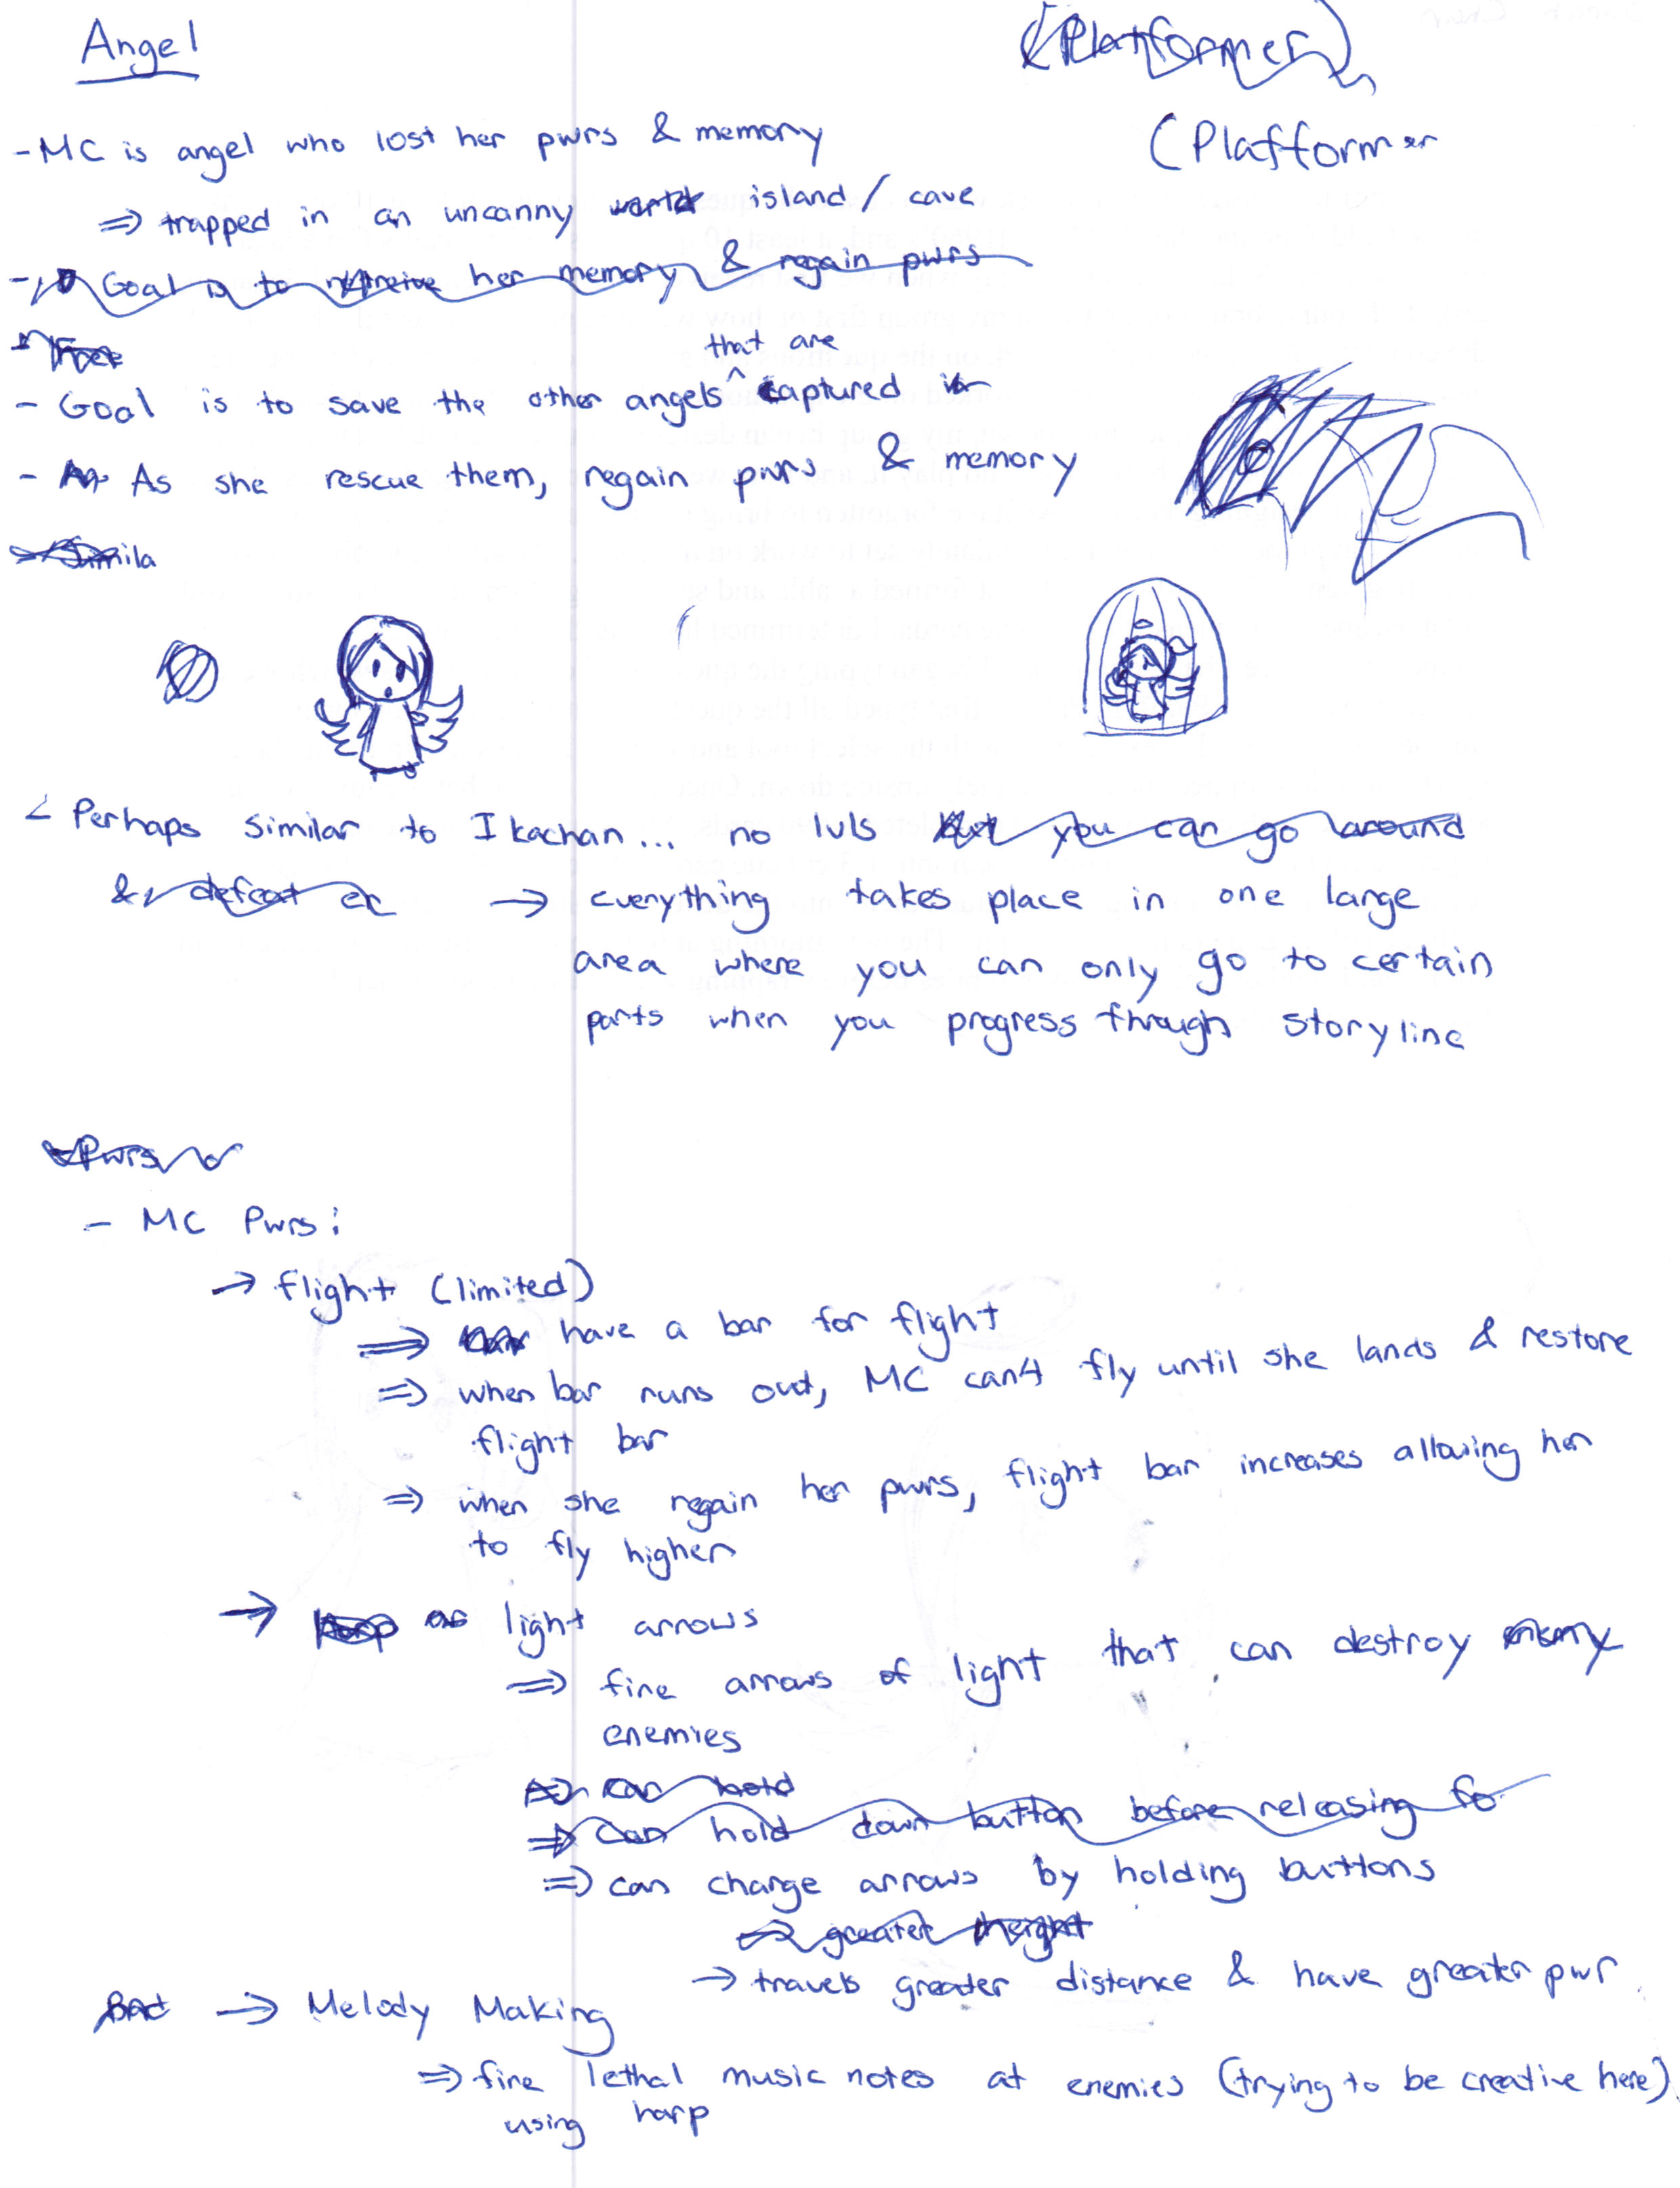 Angel
(Platformer)
(Platformer
- MC is angel who lost her pwrs & memory
⇒ trapped in an uncanny world island / cave
- Goal is to retreive her memory & regain pwrs
- Free
that are
- Goal is to save the other angels ^ captured in
- As she rescue them, regain pwrs & memory
- Simila
- Perhaps similar to Ikachan... no lvls but you can go around
& defeat en → everything takes place in one large
area where you can only go to certain
parts when you progress through storyline
- Pwrs
- MC Pwrs:
→ flight (limited)
⇒ have a bar for flight
⇒ when bar runs out, MC can't fly until she lands & restore
flight bar
⇒ when she regain her pwrs, flight bar increases allowing her
to fly higher
→ Harp light arrows
⇒ fire arrows of light that can destroy enemy
enemies
⇒ can hold
⇒ can hold down button before releasing fo
⇒ can charge arrows by holding buttons
→ greater height
→ travels greater distance & have greater pwr
→ Melody Making
⇒ fire lethal music notes at enemies (trying to be creative here).
using harp